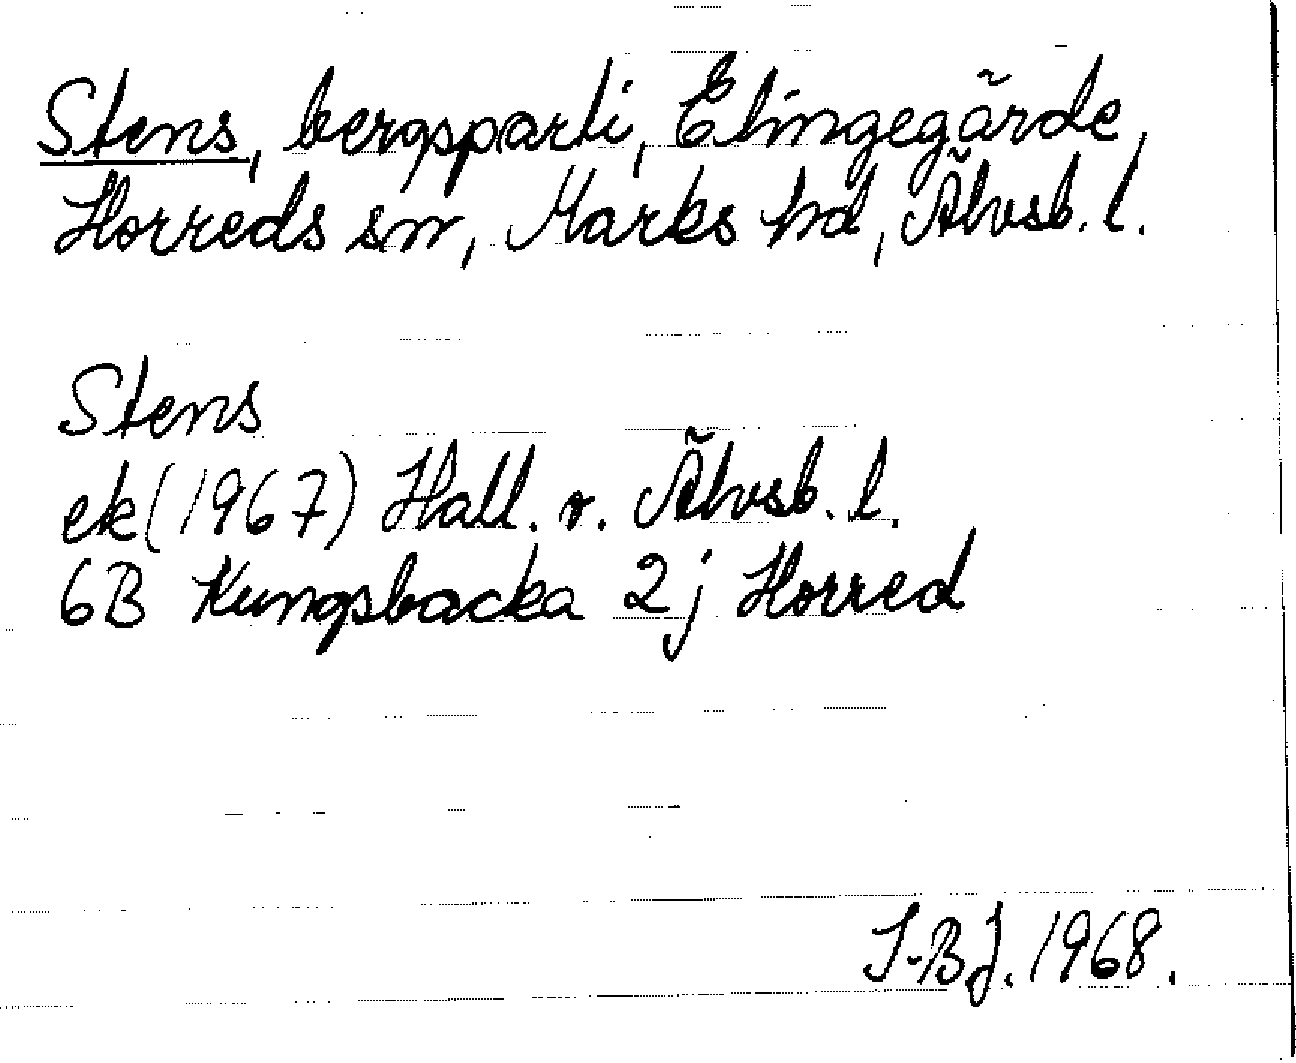 Stens, bergsparti, Elingegärde,
Horreds sn, Marks hd, Älvsb. l.
Stens
ek (1967) Hall. o. Älvsb. l.
6B Kungsbacka 2j Horred
I-B.J. 1968.